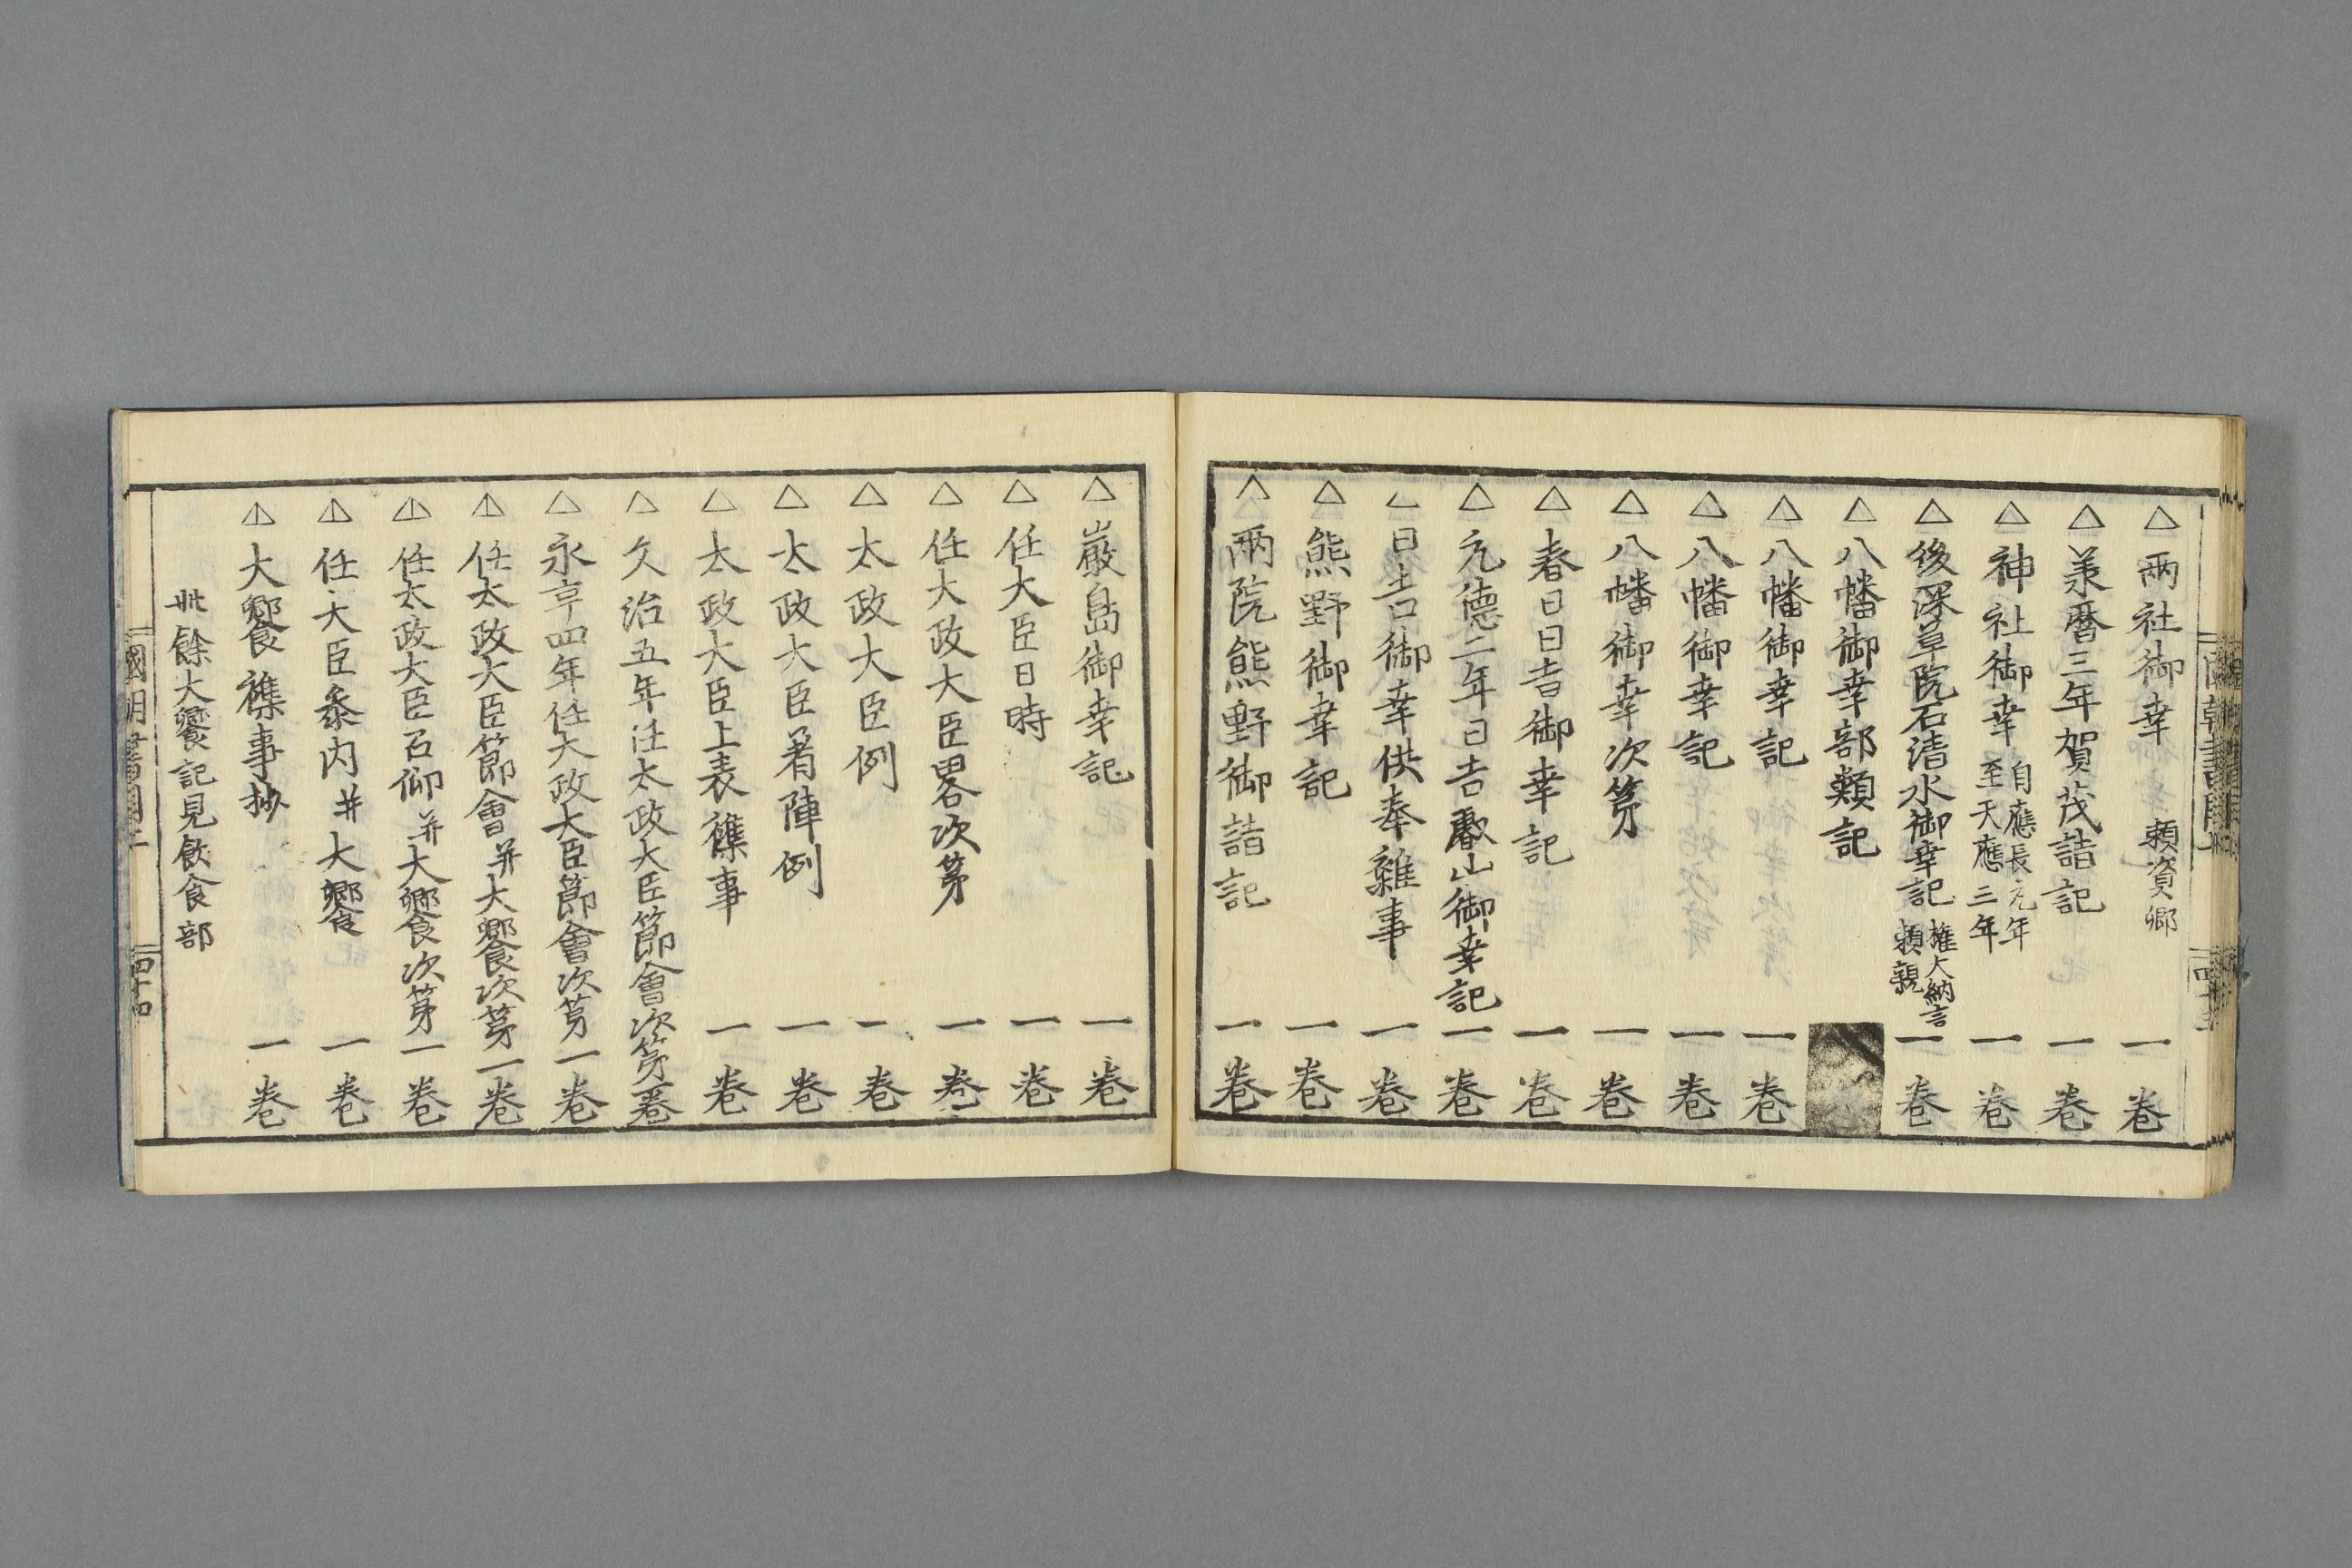 △両社御幸 頼資卿 一巻
△承暦三年賀茂詣記 一巻
△神社御幸 自應長元年 至天應三年 一巻
△後深草院石清水御幸記 権大納言 頼親 一巻
△八幡御幸部類記
△八幡御幸記 一巻
△八幡御幸記 一巻
△八幡御幸次第 一巻
△春日日吉御幸記 一巻
△元德二年日吉叡山御幸記 一巻
日吉御幸供奉雜事 一巻
△熊野御幸記 一巻
△両院熊野御詣記 一巻
△嚴島御幸記 一巻
△任大臣日時 一巻
△任大政大臣畧次第 一巻
△太政大臣例 一巻
△太政大臣着陣例 一巻
△太政大臣上表襍事 一巻
△久治五年任太政大臣節會次第 一巻
△永享四年任大政大臣節會次第 一巻
△任太政大臣節會并大饗次第 一巻
△任太政大臣召仰并大饗次第 一巻
△任大臣叅内并大饗 一巻
△大饗襍事抄 一巻
此餘大饗記見飲食部
國朝書目
四十四